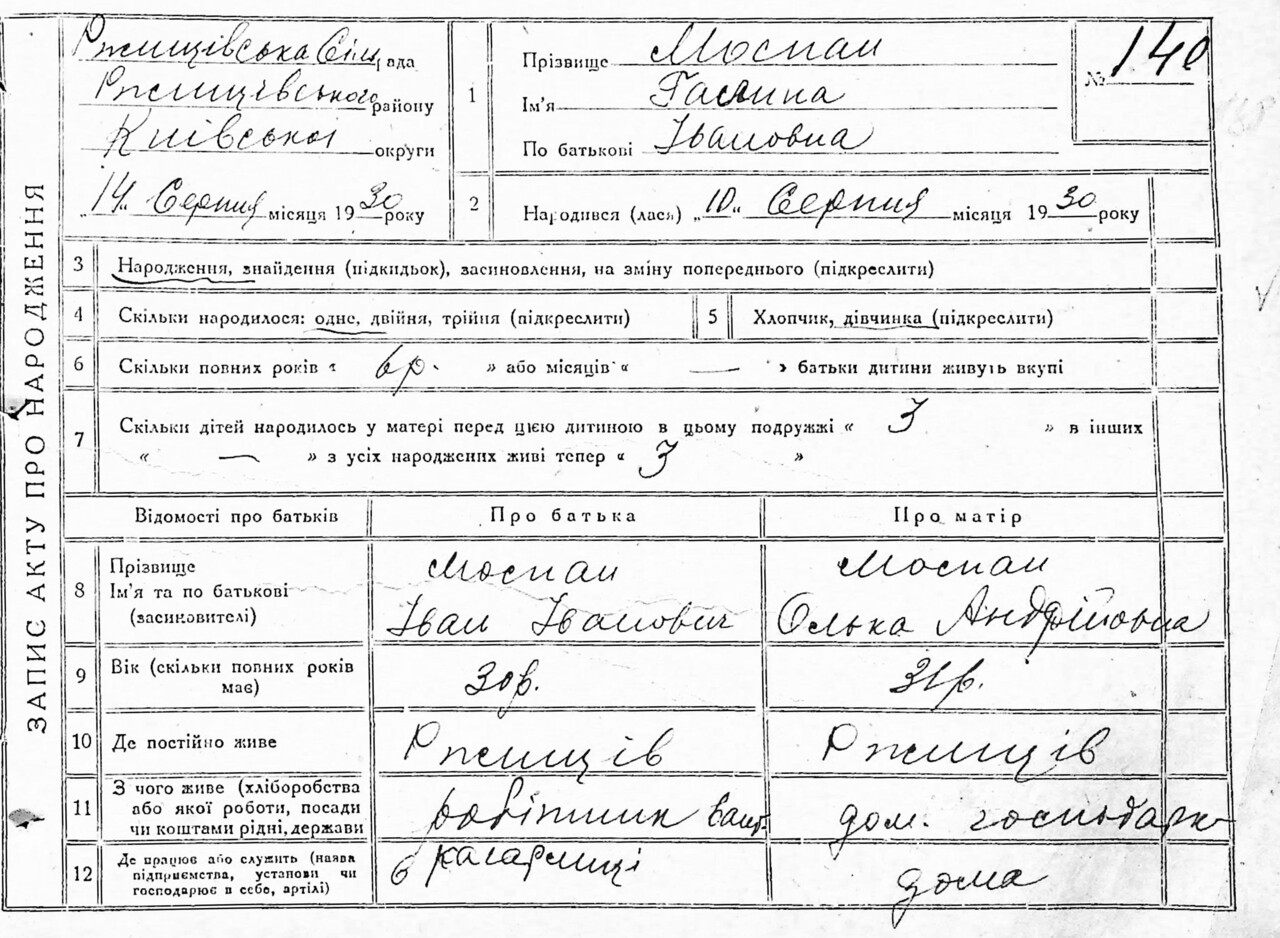 ЗАПИС АКТУ ПРО НАРОДЖЕННЯ
Ржищівська Сіль рада
Ржищівського району
Київської округи
„14" Серпня місяця 1930 року
1
Прізвище Моспан
Ім'я Галина
По батькові Івановна
№ 140
2
Народився (лася) „10" Серпня місяця 1930 року
3 Народження, знайдення (підкидьок), засиновлення, на зміну попереднього (підкреслити)
4 Скільки народилося: одне, двійня, трійня (підкреслити)
5 Хлопчик, дівчинка (підкреслити)
6 Скільки повних років « 6 р. » або місяців « — » батьки дитини живуть вкупі
7 Скільки дітей народилось у матері перед цією дитиною в цьому подружжі « 3 » в інших
« — » з усіх народжених живі тепер « 3 »
Відомості про батьків Про батька Про матір
8 Прізвище
Ім'я та по батькові
(засиновителі)
Моспан
Іван Іванович
Моспан
Олька Андрійовна
9 Вік (скільки повних років
має)
30 р.
31 р.
10 Де постійно живе Ржищів Ржищів
11 З чого живе (хліборобства
або якої роботи, посади
чи коштами рідні, держави
робітник
дом. господарка
12 Де працює або служить (назва
підприємства, установи чи
господарює в себе, артілі)
в
дома